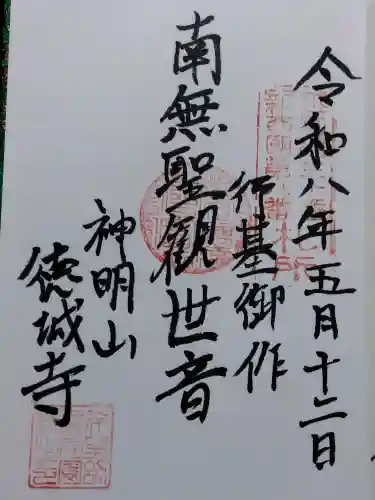 令和八年五月十二日
行基御作
南無聖観世音
神明山
徳城寺